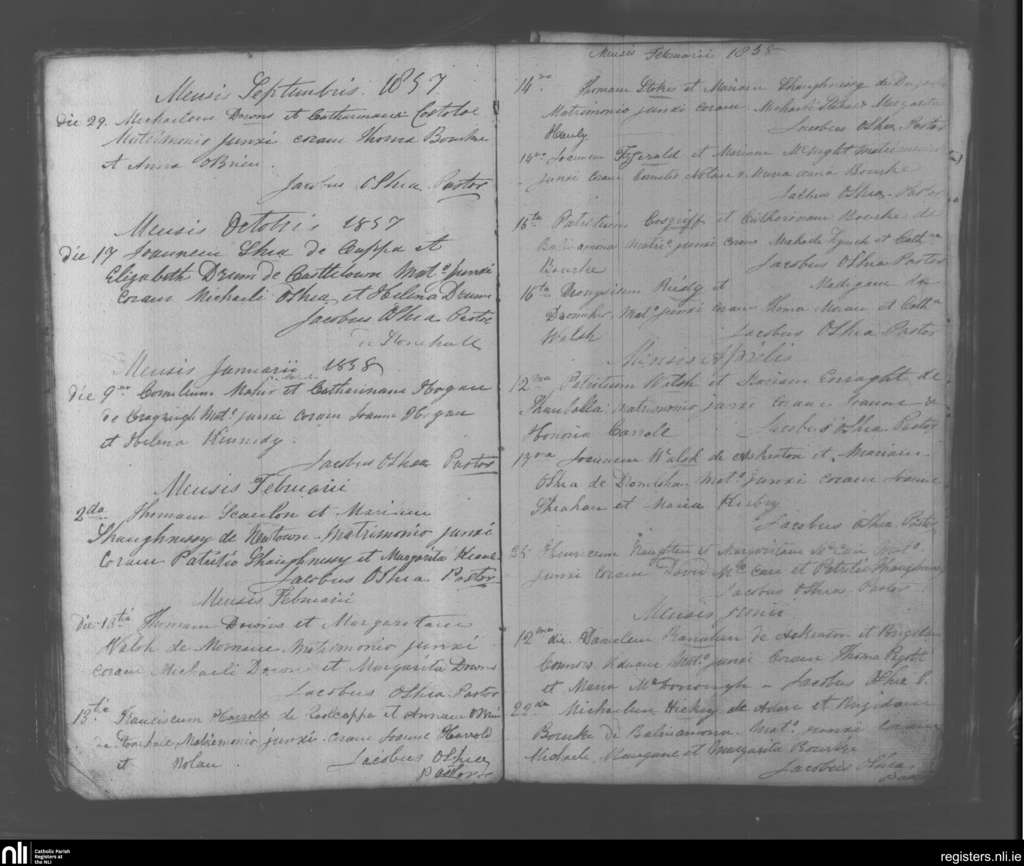 Mensis Septembris 1857
die 29. Michaelem Downs et Catharinam Costoloe
Matrimonio junxi coram Thoma Bourke
et Anna OBrien.
Jacobus OShea Pastor
Mensis Octobris 1857
die 17 Joannem Shea de Cappa et
Elizabeth Drum de Castletown Mat.o junxi
Coram Michaeli OShea et Helena Drum
Jacobus OShea Pastor
Stonehall
Mensis Januarii 1858
die 9 Cornelium Maher et Catherinam Hogan
de Mat.o junxi coram Joanne Hogan
et Helena Kennedy.
Jacobus OShea Pastor
Mensis Februarii
2da Thomam Scanlon et Mariam
Shaughnessy de Newtown Matrimonio junxi
Coram Patritio Shaughnessy et Margarita Keane
Jacobus OShea Pastor
Mensis Februarii
die 13tia Thomam Downs et Margaretam
Walsh de Matrimonio junxi
coram Michaeli Downs et Margarita Downs
Jacobus OShea Pastor
13tia Franciscum Harrold de et Annam OBrien
de Stonehall Matrimonio junxi coram Joanne Harrold
et Nolan
Jacobus OShea
Pastor
Mensis Februarii 1858
14 Thomam Stokes et Mariam Shaughnessy de
Matrimonio junxi coram Michaeli Stokes Margarita
Hanly
Jacobus OShea Pastor
Joannem Fitzgerald et Mariam McNight Matrimonio
junxi coram Cornelio Nolan Maria Anna Bourke
Jacobus OShea Pastor
15ta Patritium Cosgriff et Catherinam Bourke de
Balinanona Matr.o junxi coram Michaele Lynch et Cath
Bourke
Jacobus OShea Pastor
16ta Dionysium Reidy et Madigan de
Mat.o junxi coram Thoma Moran et Cath
Walsh
Jacobus OShea Pastor
Mensis Aprilis
12 Patritium Walsh et Enright de
Matrimonio junxi coram Joanne &
Honoria Carroll
Jacobus OShea Pastor
Joannem Walsh de Askeaton et Mariam
OShea de Mat.o junxi coram Joanne
Sheahan et Maria Kirby
Jacobus OShea Pastor
25 Henricum Naughten et Margaritam Mat.o
junxi coram David et Patritio Shaughnessy
Jacobus OShea Pastor
Mensis Junii
12 die Danielem de Askeaton et Brigidam
Connors Mat.o junxi Coram Thoma
et Maria McDonough Jacobus OShea P.
29 Michaelem Hickey de Adare et Brigidam
Bourke de Balinanona Mat.o junxi coram
Michaele et Margarita Bourke
Jacobus OShea
nli
Catholic Parish
Registers at
the NLI
registers.nli.ie